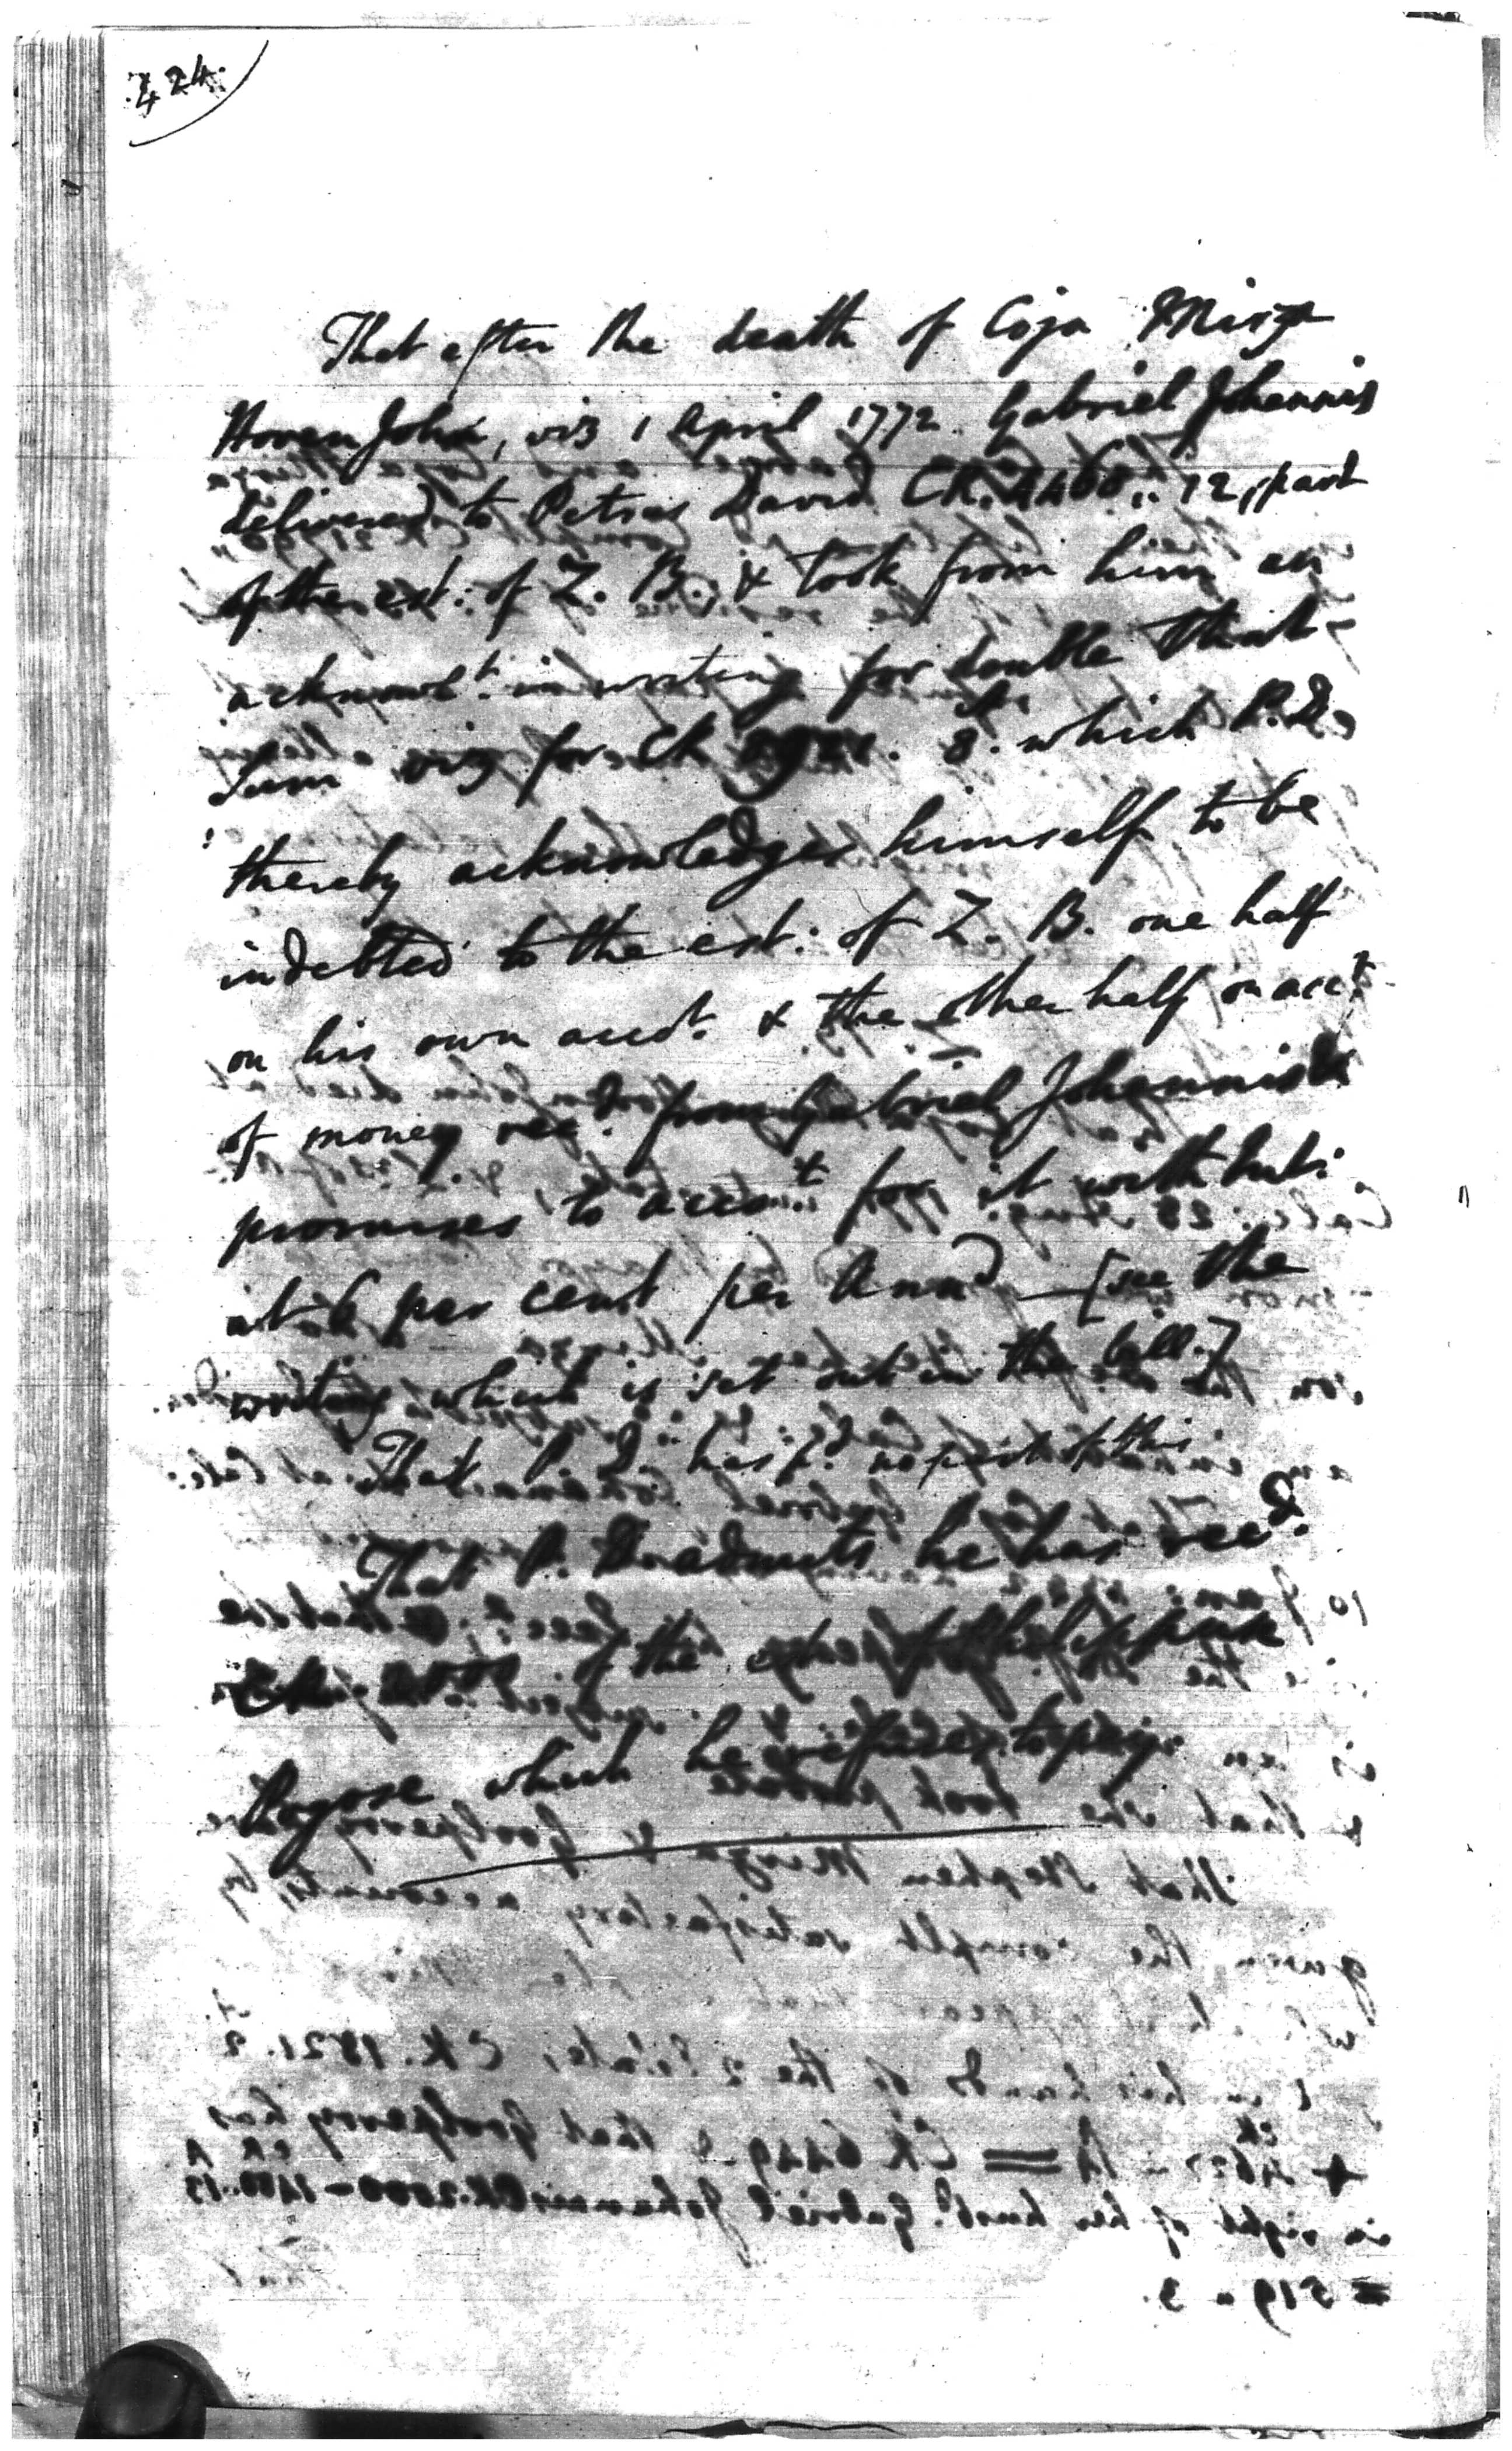 424.
That after the death of Coja Mirza
Hoven John, viz 1 April 1772 Gabriel Johannis
delivered to Petrus David CR. 4460.. 12, part
of the est: of Z. B. & took from him an
acknowt. in writing for double that
Sum viz for CR 8921. 8. which P. D.
thereby acknowledges himself to be
indebted to the est: of Z. B. one half
on his own acct. & the other half on acct
of money recd. from Gabriel Johannis &
promises to accot for it with Int:
at 6 per cent per Ann [see the
writing which is set out in the bill.]
That P. D. has pd. no part of this
That P. D. admits he has recd.
CR 2000 of the
Pogose which he refuses to pay.